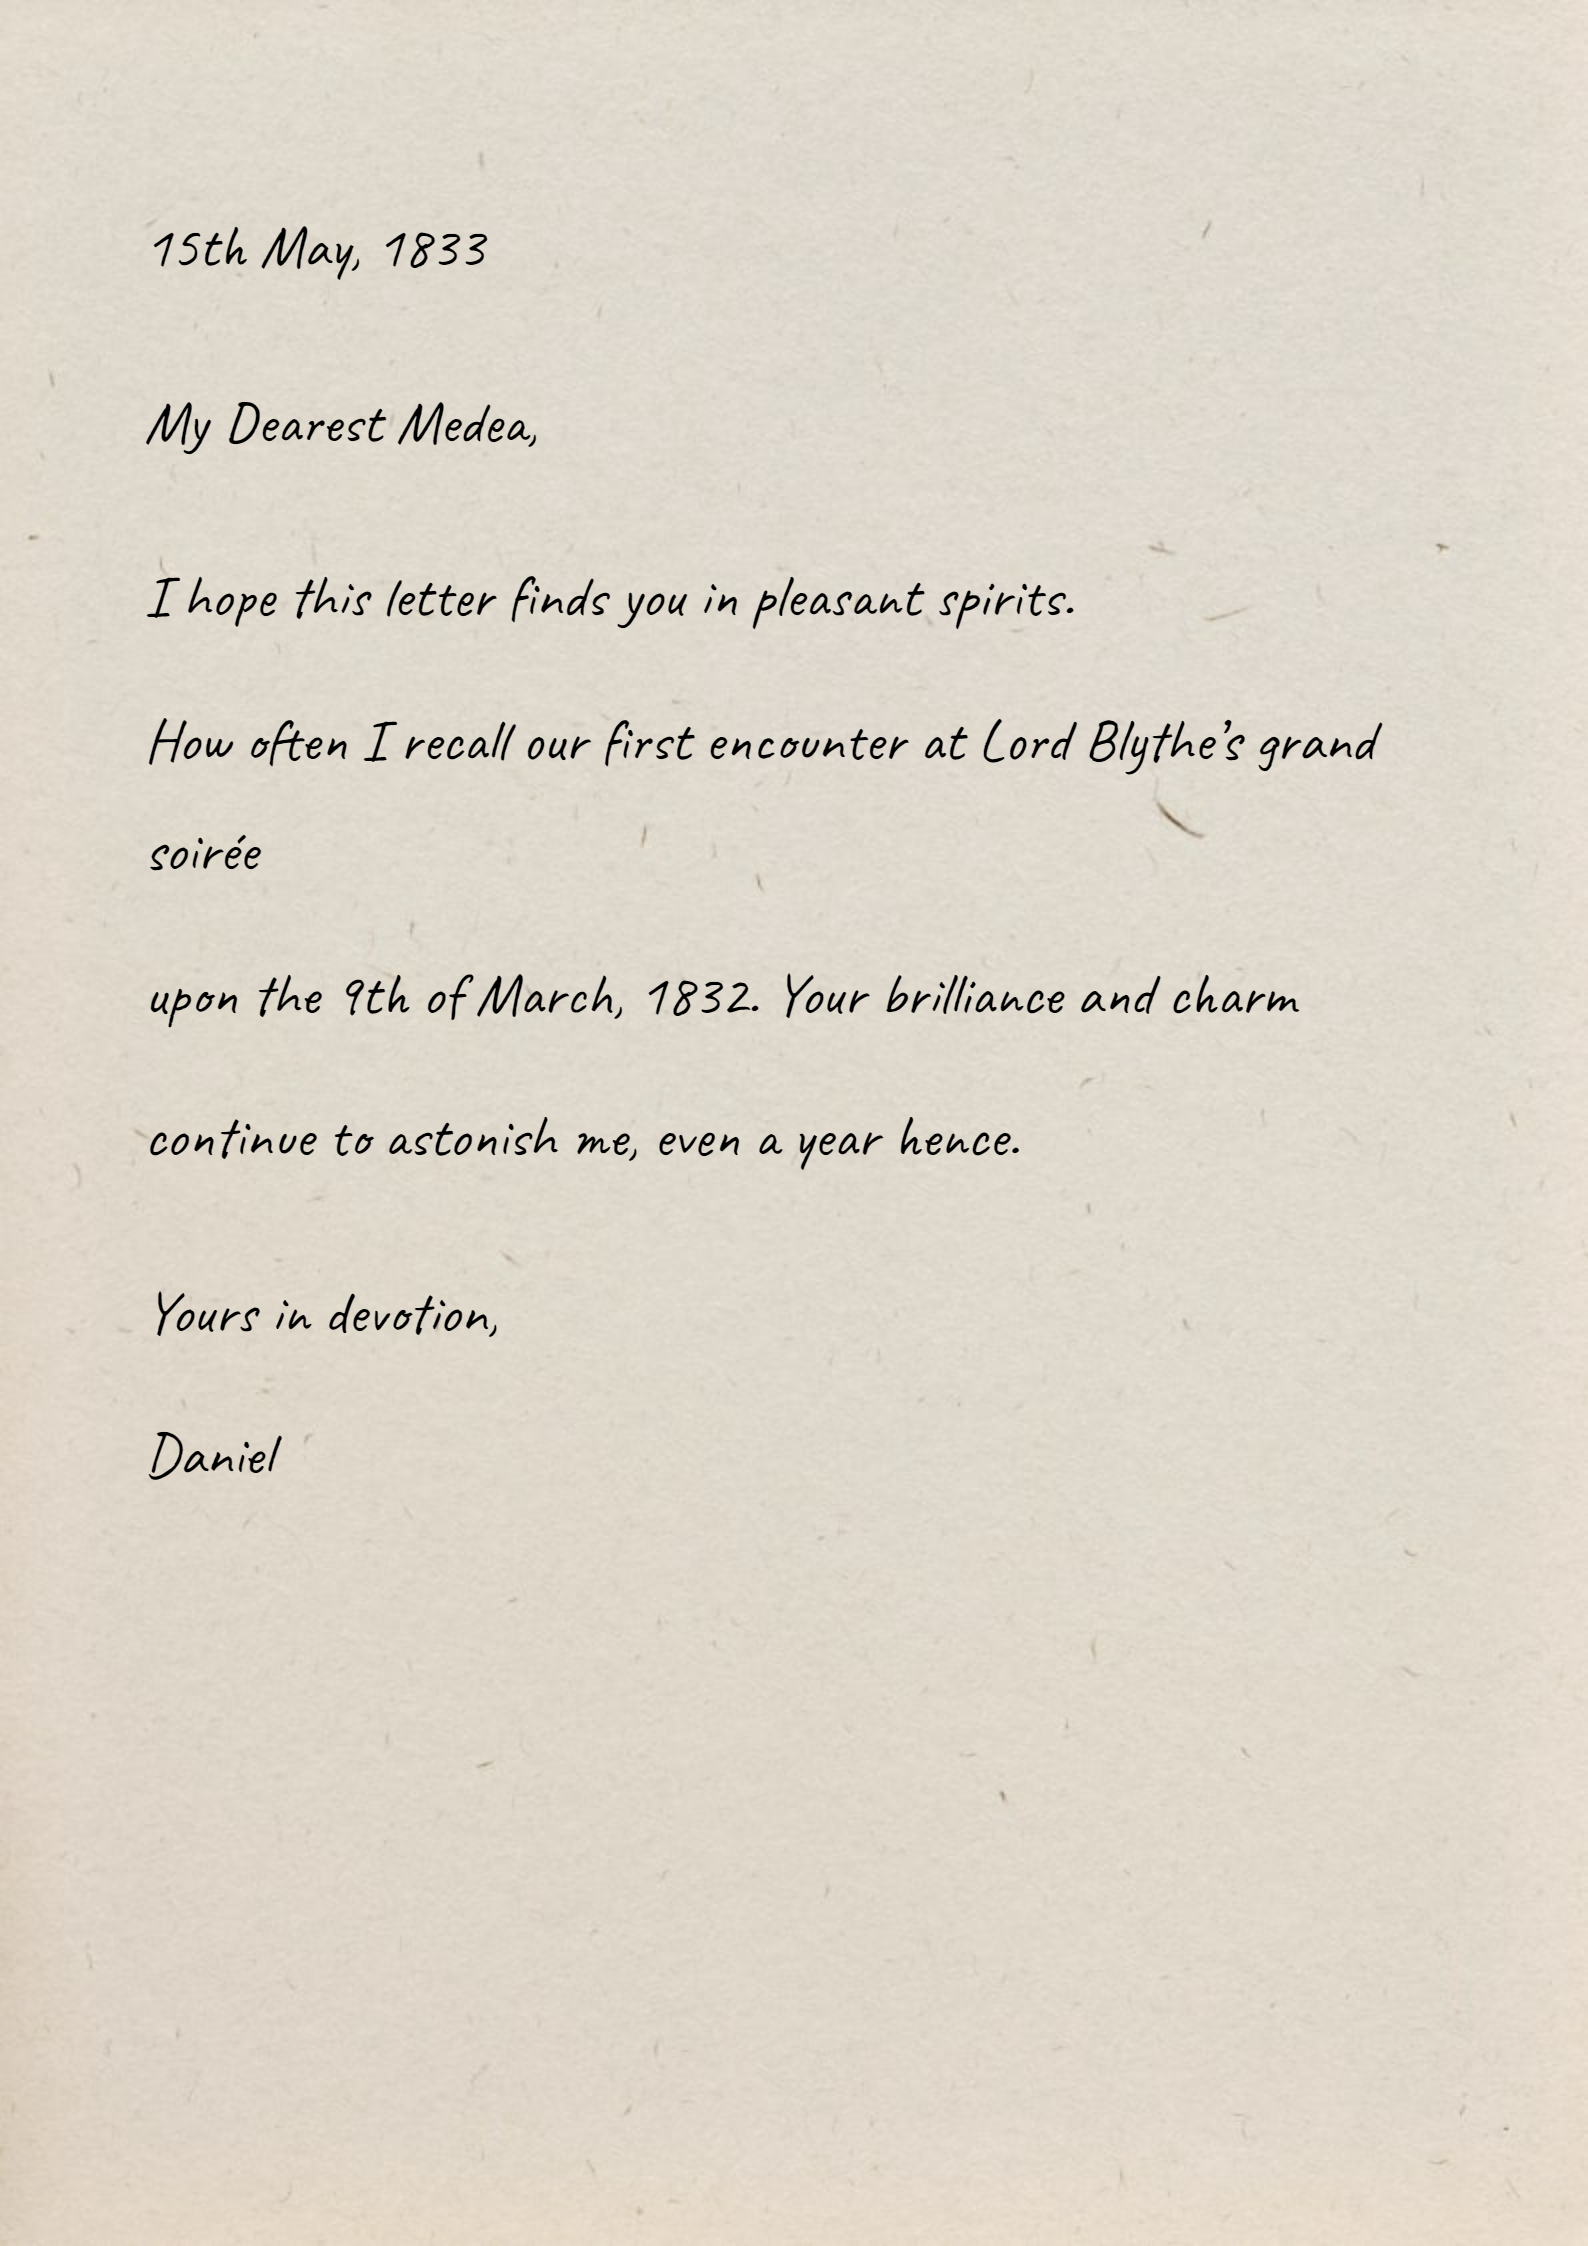 15th May, 1833
My Dearest Medea,
I hope this letter finds you in pleasant spirits.
How often I recall our first encounter at Lord Blythe’s grand
soirée
upon the 9th of March, 1832. Your brilliance and charm
continue to astonish me, even a year hence.
Yours in devotion,
Daniel